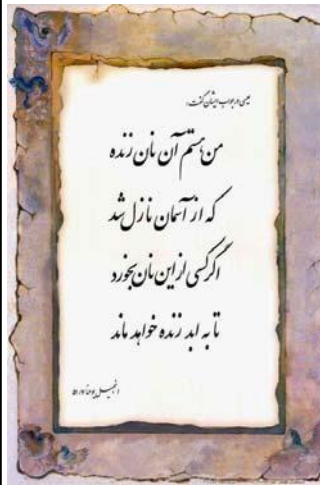 عیسی در جواب ایشان گفت:
من هستم آن نان زنده
که از آسمان نازل شد
اگر کسی از این نان بخورد
تا به ابد زنده خواهد ماند
انجیل یوحنا